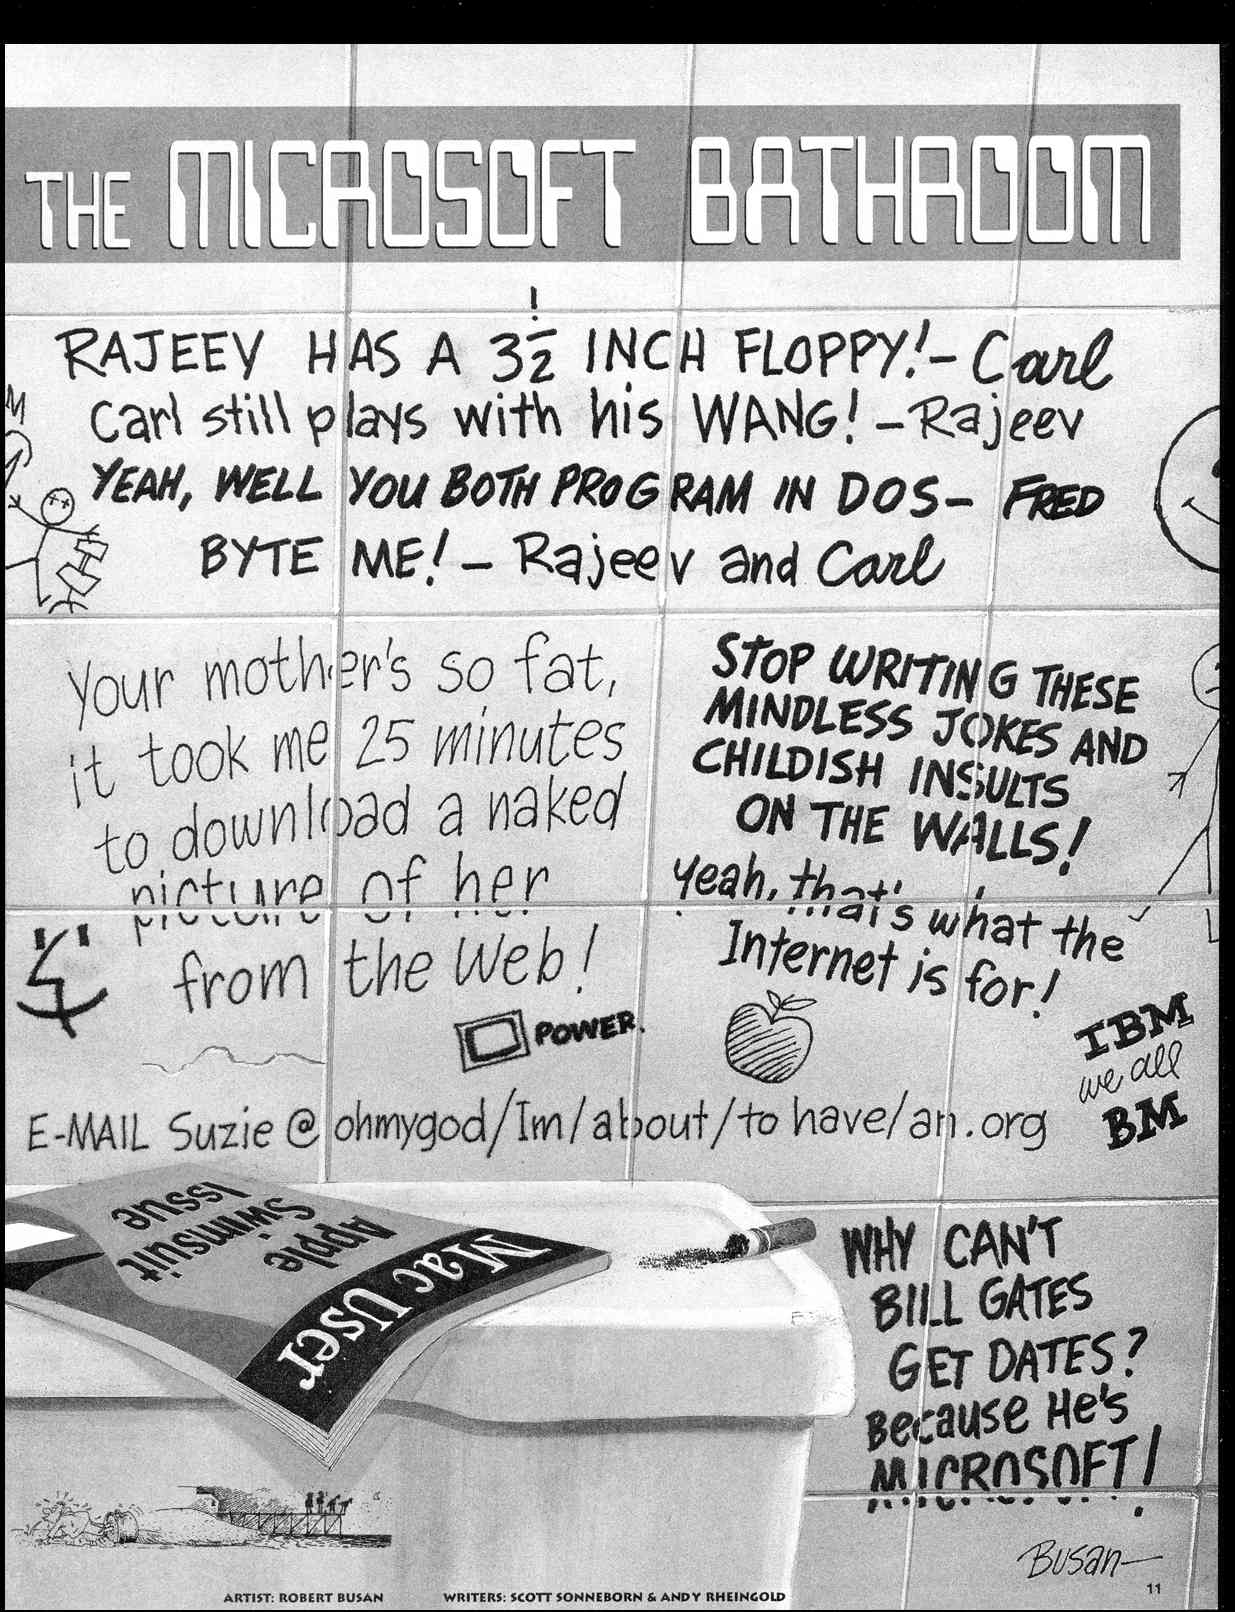 THE MICROSOFT BATHROOM
!
RAJEEV HAS A 3½ INCH FLOPPY! – Carl
Carl still plays with his WANG! – Rajeev
YEAH, WELL YOU BOTH PROGRAM IN DOS – FRED
BYTE ME! – Rajeev and Carl
Your mother's so fat,
it took me 25 minutes
to download a naked
picture of her
from the Web!
STOP WRITING THESE
MINDLESS JOKES AND
CHILDISH INSULTS
ON THE WALLS!
Yeah, that's what the
Internet is for!
POWER.
IBM
we all
BM
E-MAIL Suzie @ ohmygod/Im/about/to have/an.org
Mac User
Apple
Swimsuit
Issue
WHY CAN'T
BILL GATES
GET DATES?
Because He's
MICROSOFT!
Busan
ARTIST: ROBERT BUSAN WRITERS: SCOTT SONNEBORN & ANDY RHEINGOLD
11